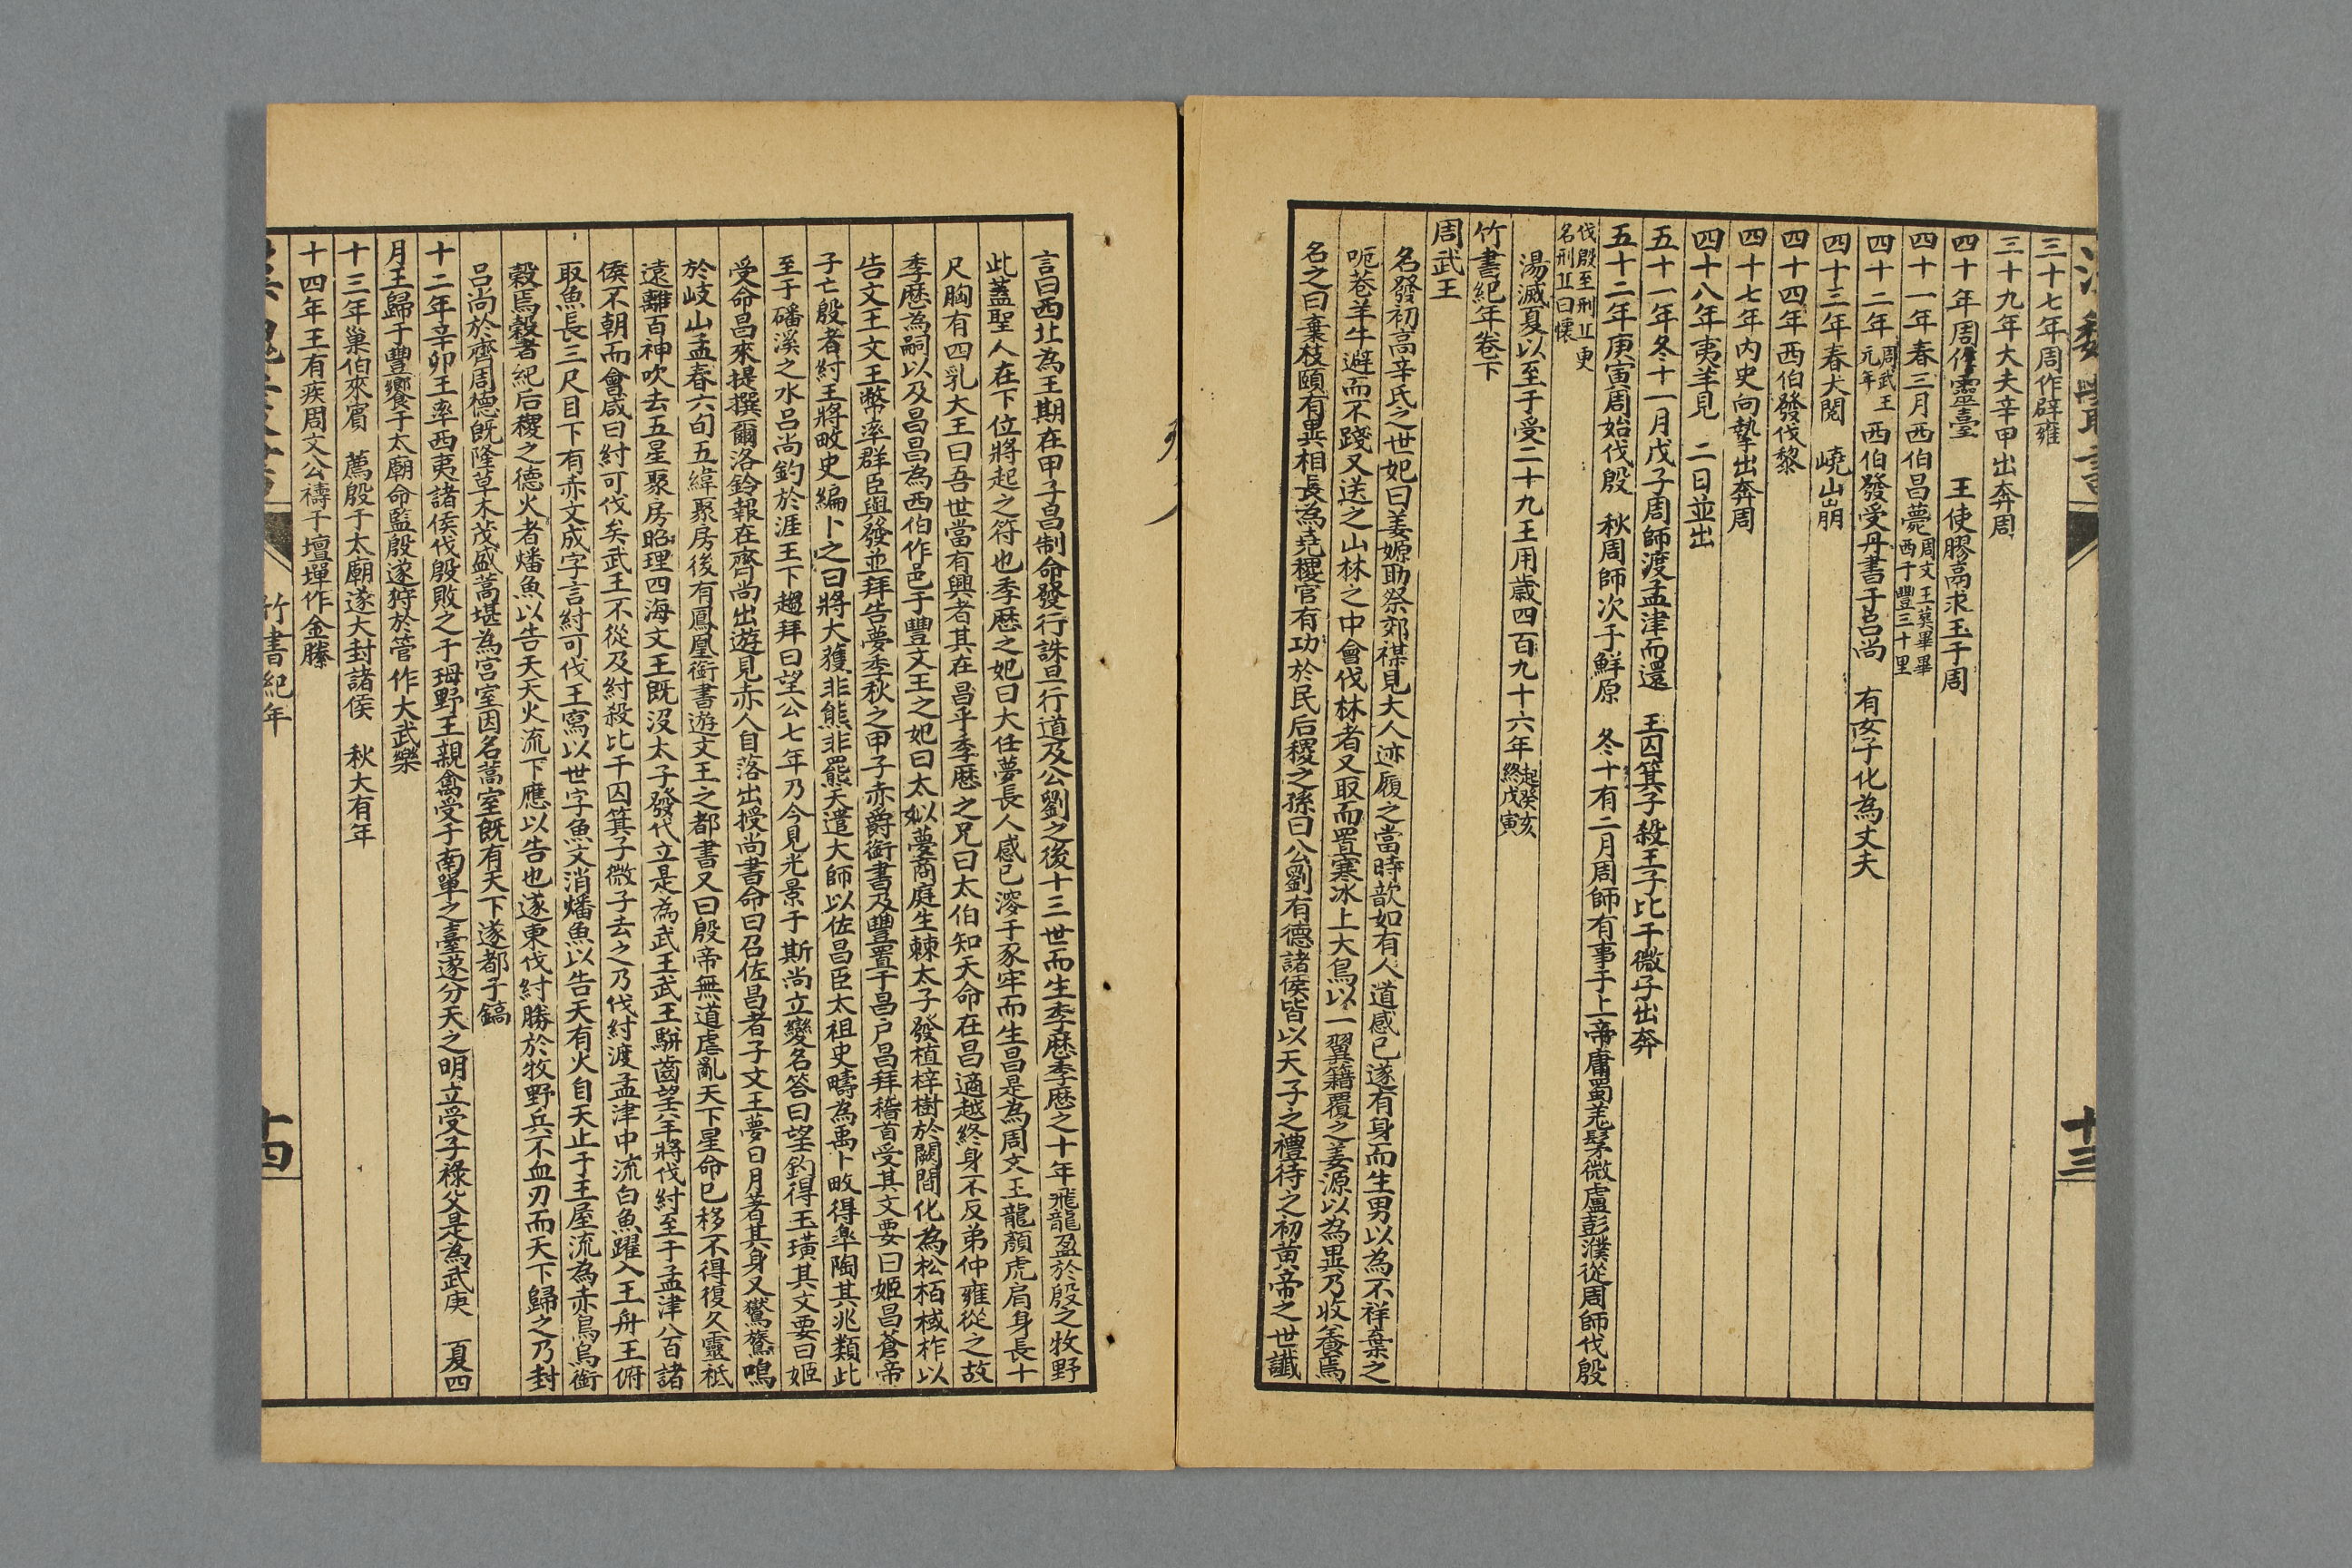 三十七年周作辟雍
三十九年大夫辛甲出奔周
四十年周作靈臺　王使膠鬲求玉于周
四十一年春三月西伯昌薨周文王葬畢畢西于豐三十里
四十二年周武王元年西伯發受丹書于呂尚　有女子化為丈夫
四十三年春大閱　嶢山崩
四十四年西伯發伐黎
四十七年內史向摯出奔周
四十八年夷羊見　二日並出
五十一年冬十一月戊子周師渡孟津而還　王囚箕子殺王子比干微子出奔
五十二年庚寅周始伐殷　秋周師次于鮮原　冬十有二月周師有事于上帝庸蜀羌髳微盧彭濮從周師伐殷
伐殷至刑丘更名刑丘曰懷
湯滅夏以至于受二十九王用歲四百九十六年起癸亥終戊寅
竹書紀年卷下
周武王
名發初高辛氏之世妃曰姜嫄助祭郊禖見大人迹履之當時歆如有人道感已遂有身而生男以為不祥棄之
阨巷羊牛避而不踐又送之山林之中會伐林者又取而置寒冰上大鳥以一翼籍覆之姜源以為異乃收養焉
名之曰棄枝頤有異相長為堯稷官有功於民后稷之孫曰公劉有德諸侯皆以天子之禮待之初黃帝之世讖
十三
言曰西北為王期在甲子昌制命發行誅旦行道及公劉之後十三世而生季歷季歷之十年飛龍盈於殷之牧野
此蓋聖人在下位將起之符也季歷之妃曰大任夢長人感已溲于豕牢而生昌是為周文王龍顏虎肩身長十
尺胸有四乳大王曰吾世當有興者其在昌乎季歷之兄曰太伯知天命在昌適越終身不反弟仲雍從之故
季歷為嗣以及昌昌為西伯作邑于豐文王之妃曰太姒夢商庭生棘太子發植梓樹於闕閒化為松栢棫柞以
告文王文王幣率群臣與發並拜告夢季秋之甲子赤爵銜書及豐置于昌戶昌拜稽首受其文要曰姬昌蒼帝
子亡殷者紂王將畋史編卜之曰將大獲非熊非羆天遣大師以佐昌臣太祖史疇為禹卜畋得皋陶其兆類此
至于磻溪之水呂尚釣於涯王下趨拜曰望公七年乃今見光景于斯尚立變名答曰望釣得玉璜其文要曰姬
受命昌來提撰爾洛鈴報在齊尚出遊見赤人自落出授尚書命曰召佐昌者子文王夢日月著其身又鸑鷟鳴
於岐山孟春六旬五緯聚房後有鳳凰銜書遊文王之都書又曰殷帝無道虐亂天下星命已移不得復久靈祇
遠離百神吹去五星聚房昭理四海文王既沒太子發代立是為武王武王駢齒望羊將伐紂至于孟津八百諸
侯不朝而會咸曰紂可伐矣武王不從及紂殺比干囚箕子微子去之乃伐紂渡孟津中流白魚躍入王舟王俯
取魚長三尺目下有赤文成字言紂可伐王寫以世字魚文消燔魚以告天有火自天止于王屋流為赤烏烏銜
穀焉穀者紀后稷之德火者燔魚以告天天火流下應以告也遂東伐紂勝於牧野兵不血刃而天下歸之乃封
呂尚於齊周德既隆草木茂盛蒿堪為宮室因名蒿室既有天下遂都于鎬
十二年辛卯王率西夷諸侯伐殷敗之于坶野王親禽受于南單之臺遂分天之明立受子祿父是為武庚　夏四
月王歸于豐饗于太廟命監殷遂狩於管　作大武樂
十三年巢伯來賓　薦殷于太廟遂大封諸侯　秋大有年
十四年王有疾周文公禱于壇墠作金縢
竹書紀年
十四